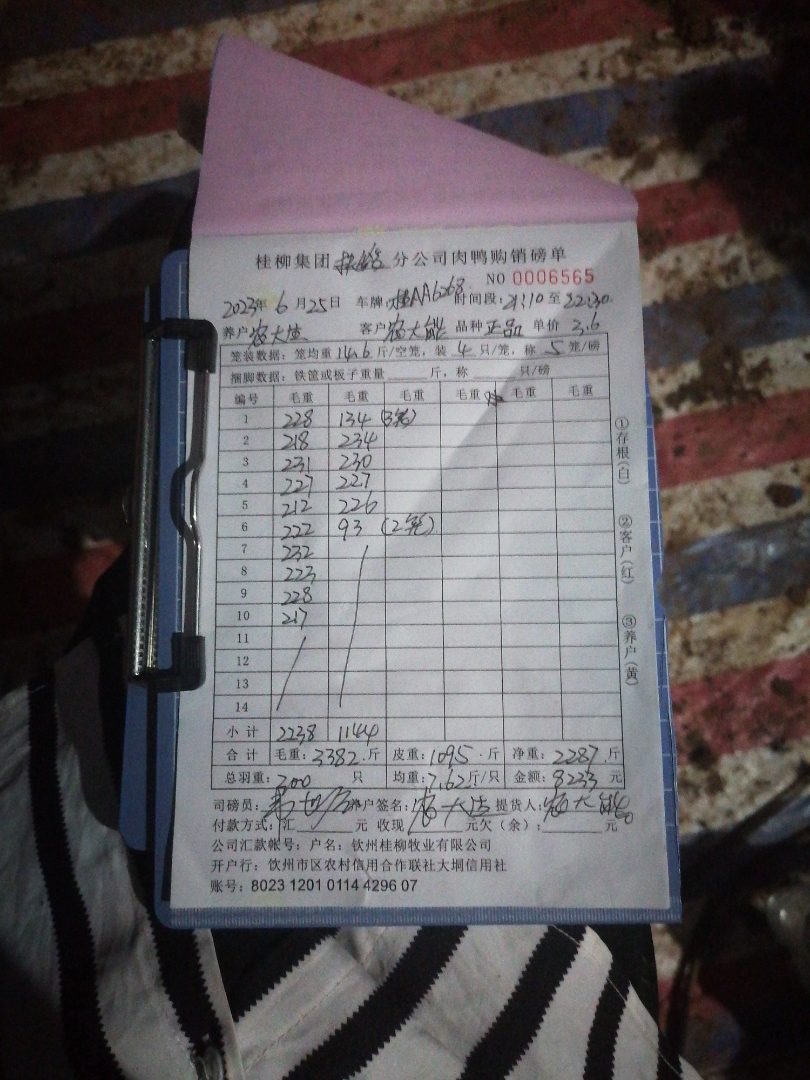 桂柳集团扶绥分公司肉鸭购销磅单
NO 0006565
2023年 6月 25日 车牌:桂AA6268 时间段:21:10至22:30
养户 客户 农大能 品种 正品 单价 3.6
笼装数据:笼均重 14.6 斤/空笼,装 4 只/笼,称 5 笼/磅
捆脚数据:铁筐或板子重量 斤,称 只/磅
编号 毛重 毛重 毛重 毛重 毛重 毛重
1 228 134 (3笼)
2 218 234
3 231 230
4 227 227
5 212 226
6 222 93 (2笼)
7 232
8 223
9 228
10 217
11
12
13
14
小计 2238 1144
合计 毛重:3382.斤 皮重:1095.斤 净重:2287.斤
总羽重:300 只 均重:7.62斤/只 金额:8233 元
司磅员: 养户签名: 提货人:农大能
付款方式:汇 元 收现 元欠(余): 元
公司汇款帐号:户名:钦州桂柳牧业有限公司
开户行:钦州市区农村信用合作联社大垌信用社
账号:8023 1201 0114 4296 07
①存根(白)
②客户(红)
③养户(黄)